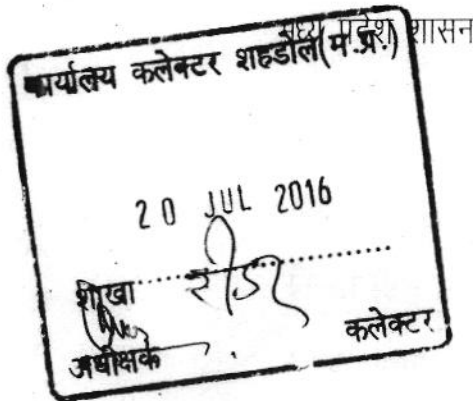 मध्य प्रदेश शासन
कार्यालय कलेक्टर शहडोल (म.प्र.)
20 JUL 2016
शाखा रीडर
अधीक्षक
कलेक्टर